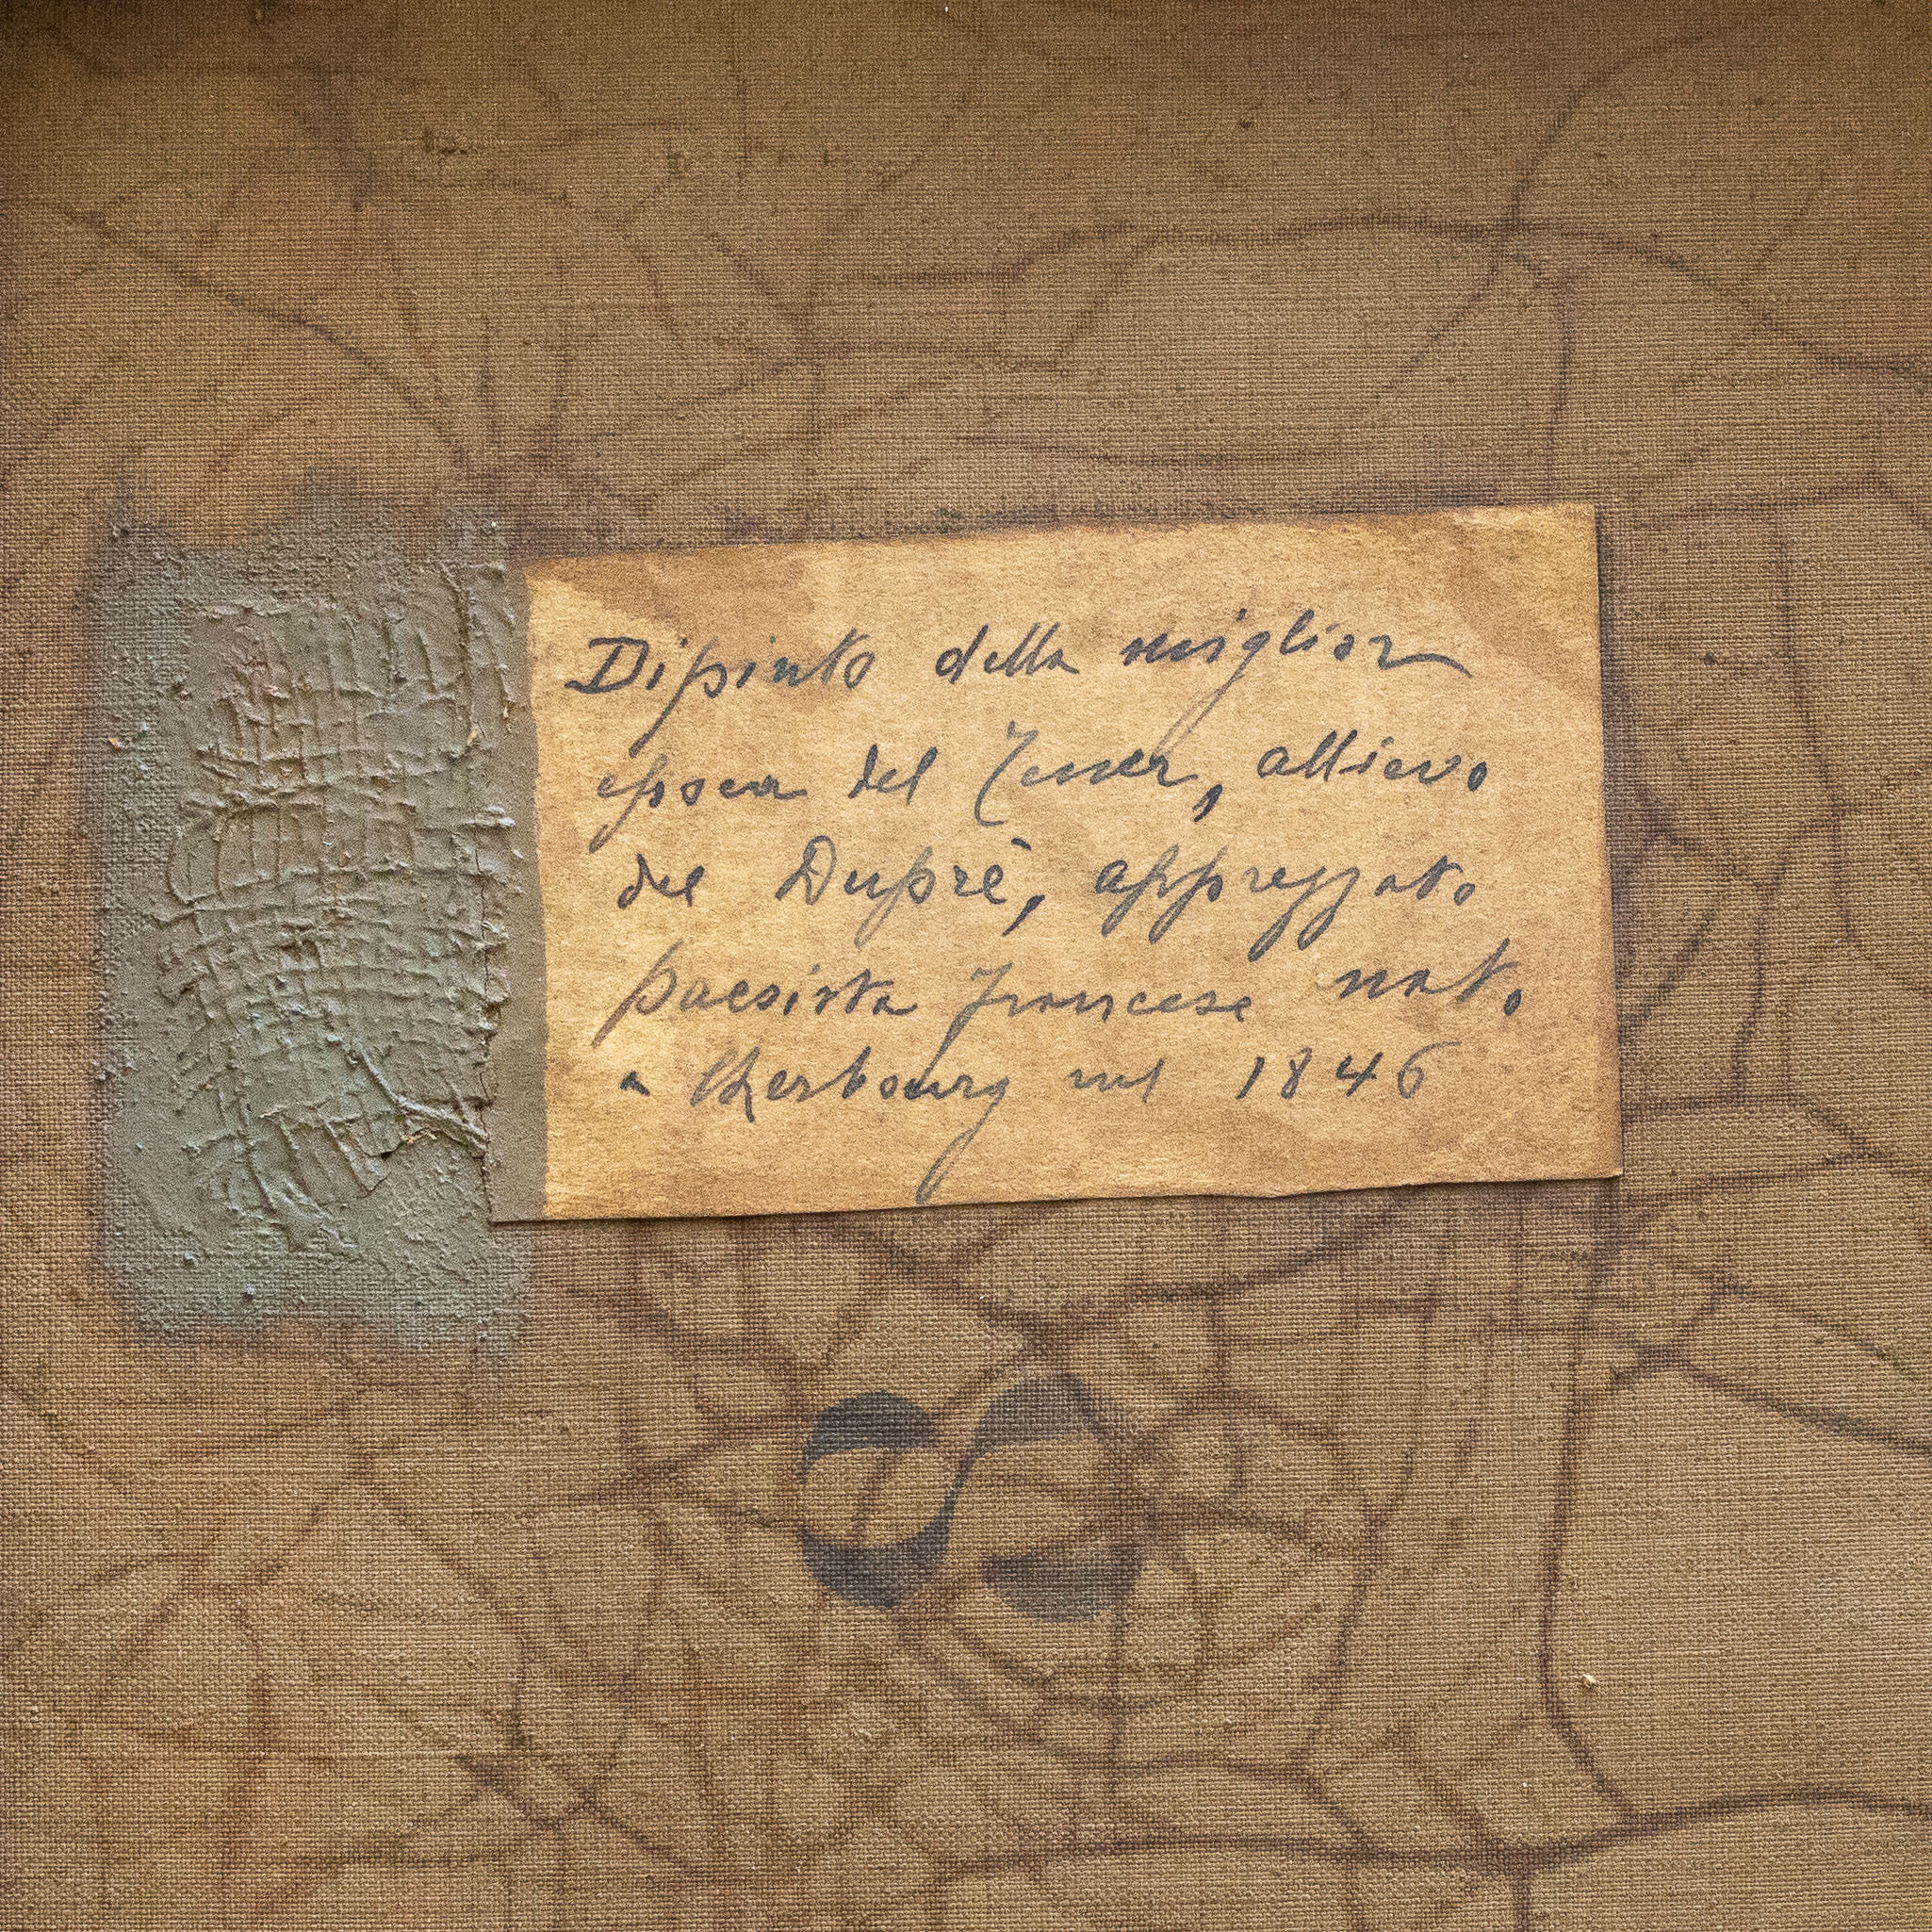 Dipinto della miglior
epoca del allievo
del Duprè, apprezzato
paesista francese nato
a Cherbourg nel 1846